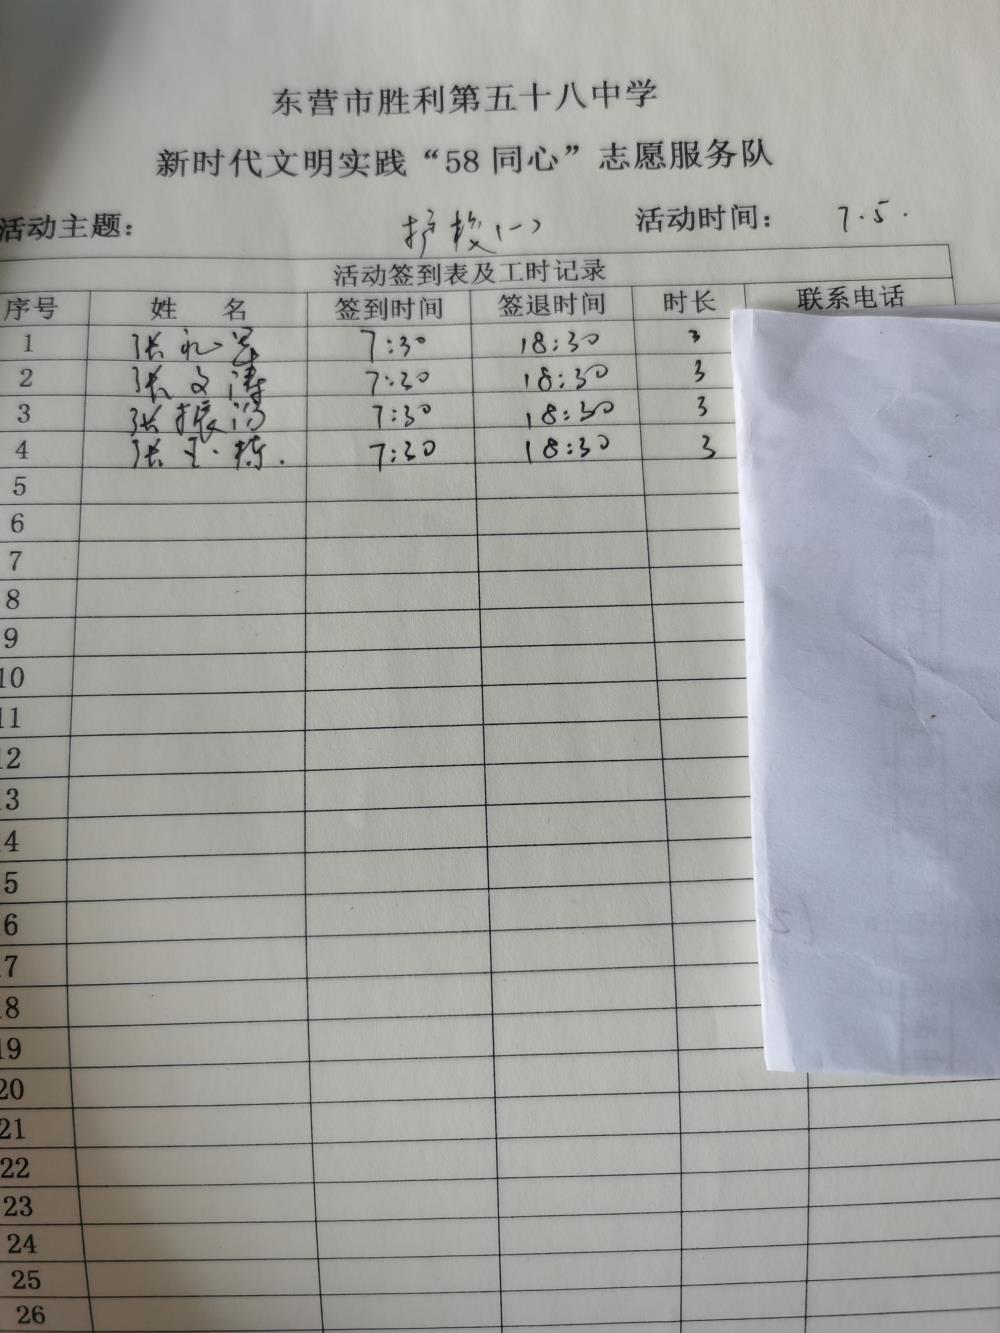 东营市胜利第五十八中学
新时代文明实践“58同心”志愿服务队
活动主题： 护校(一) 活动时间： 7.5.
活动签到表及工时记录
序号 姓 名 签到时间 签退时间 时长 联系电话
1 张礼 7:30 18:30 3
2 张文涛 7:30 18:30 3
3 张振 7:30 18:30 3
4 张玉栋. 7:30 18:30 3
5
6
7
8
9
10
11
12
13
14
15
16
17
18
19
20
21
22
23
24
25
26